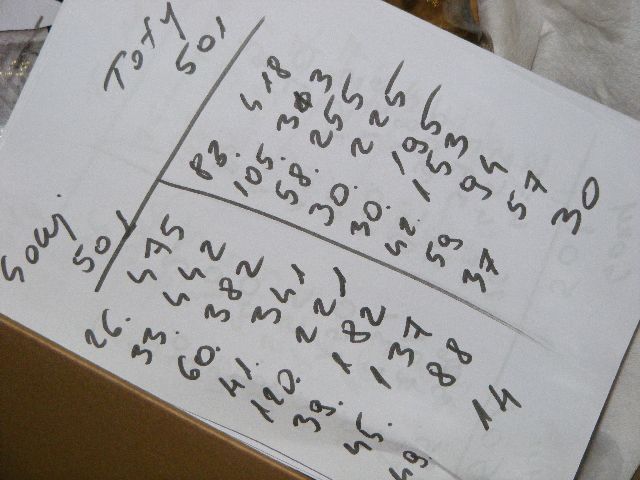 Toty
501
83. 418
105. 313
58. 255
30. 225
30. 195
42. 153
59. 94
37. 57
30
501
26. 475
33. 442
60. 382
41. 341
120. 221
39. 182
45. 137
49. 88
14